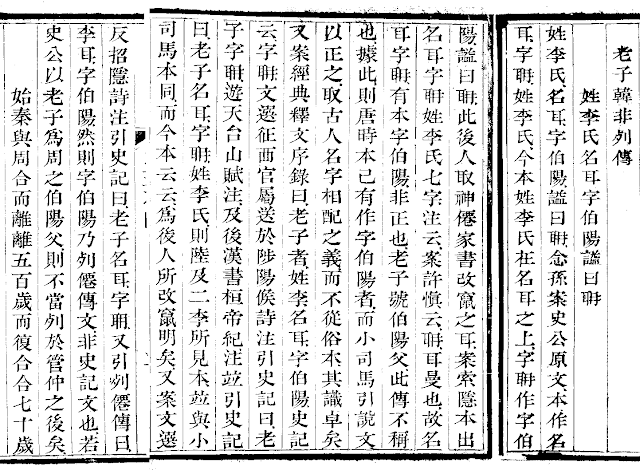 老子韓非列傳
姓李氏名耳字伯陽諡曰耼
姓李氏名耳字伯陽諡曰耼念孫案史公原文本作名
耳字耼姓李氏今本姓李氏在名耳之上字耼作字伯
陽諡曰耼此後人取神僊家書改竄之耳案索隱本出
名耳字耼姓李氏七字注云案許愼云耼耳曼也故名
耳字耼有本字伯陽非正也老子號伯陽父此傳不稱
也據此則唐時本已有作字伯陽者而小司馬引說文
以正之取古人名字相配之義而不從俗本其識卓矣
又案經典釋文序錄曰老子者姓李名耳字伯陽史記
云字耼文選征西官屬送於陟陽候詩注引史記曰老
子字耼遊天台山賦注及後漢書桓帝紀注竝引史記
曰老子名耳字耼姓李氏則陸及二李所見本竝與小
司馬本同而今本云云爲後人所改竄明矣又案文選
反招隱詩注引史記曰老子名耳字耼又引列僊傳曰
李耳字伯陽然則字伯陽乃列僊傳文非史記文也若
史公以老子爲周之伯陽父則不當列於管仲之後矣
始秦與周合而離離五百歲而復合合七十歲